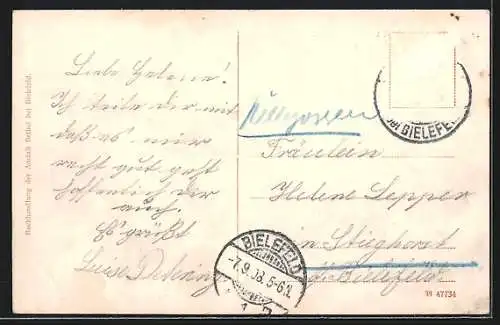 Buchhandlung der Anstalt Bethel bei Bielefeld.
Liebe Helene!
Ich teile dir mit
daß es mir
recht gut geht
hoffentlich dir
auch.
Es grüßt
Luise
bei BIELEFELD
Fräulein
Helene Lepper
in Stieghorst
bei Bielefeld
BIELEFELD
-7.9.18.5-6N.
99 47734